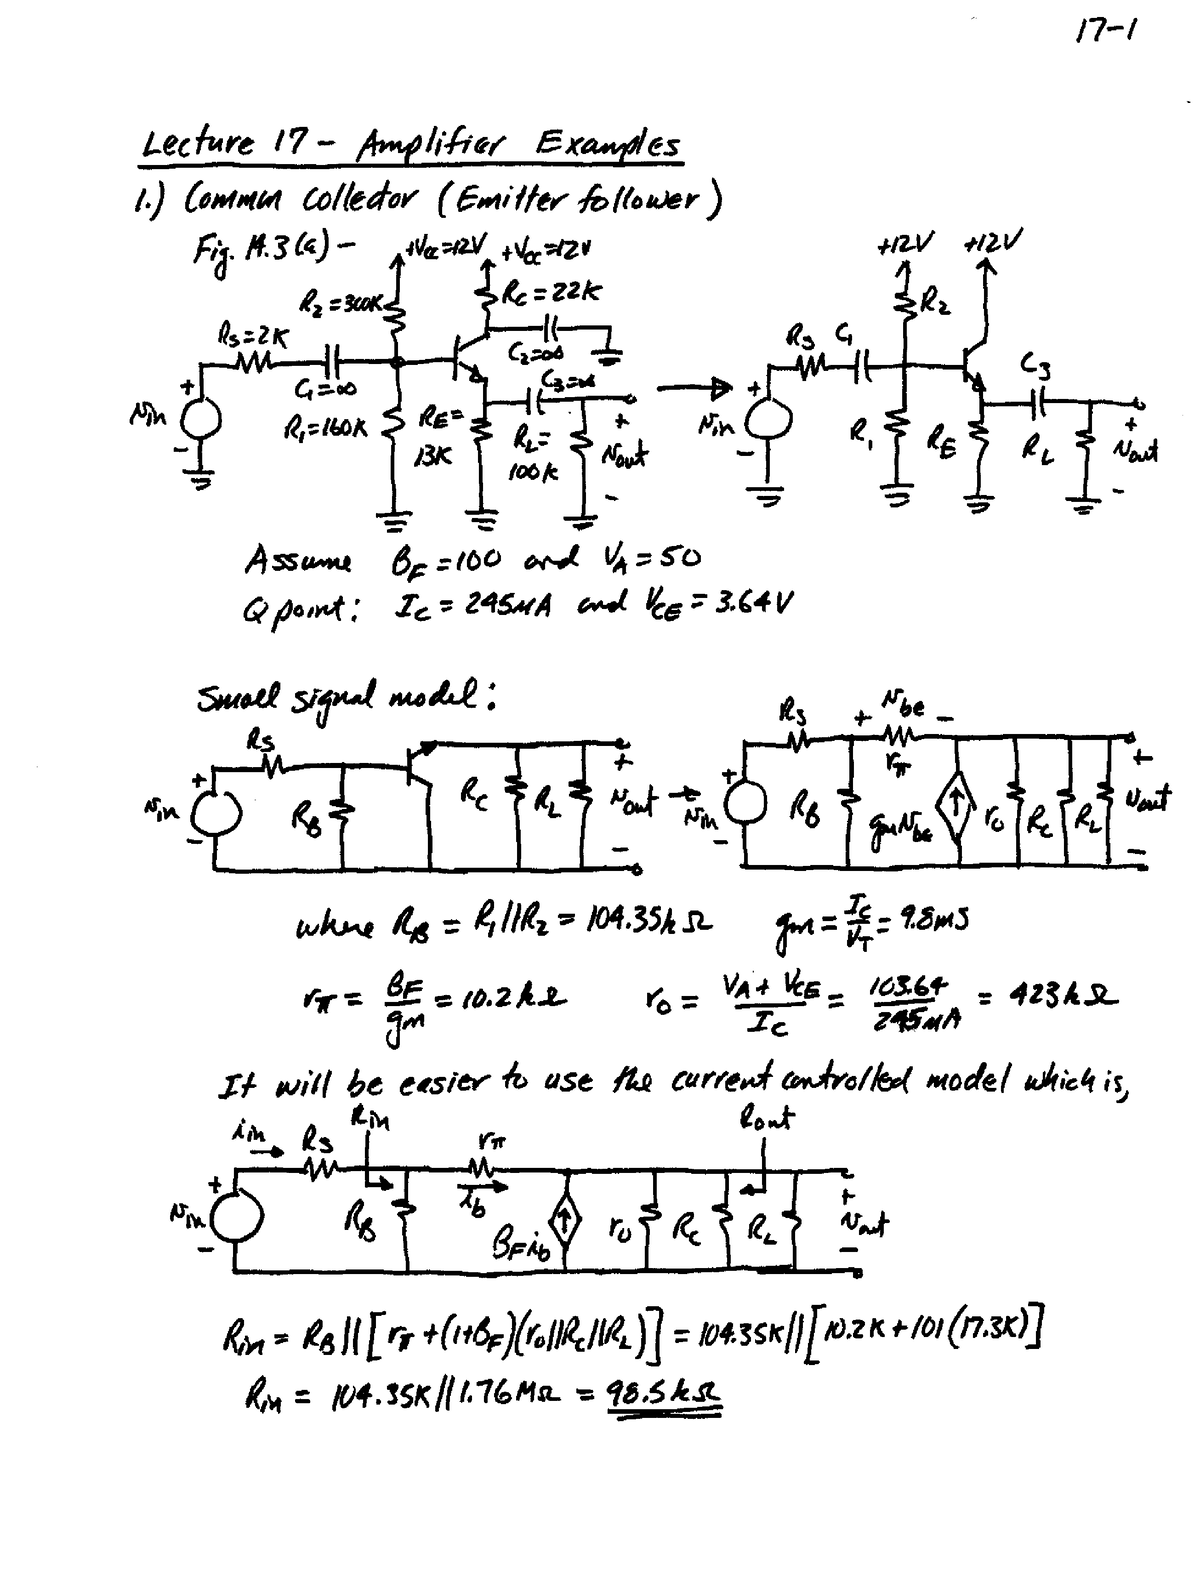 17-1
Lecture 17 - Amplifier Examples
1.) Common Collector (Emitter follower)
Fig. 14.3(a) -
+VCC=12V +VCC=12V
+12V +12V
R2=300K
RC=22K
R2
RS=2K
C2=∞
RS C1
C3
C1=∞
C3=∞
+
vin
-
R1=160K
RE=
13K
RL=
100K
+
vout
-
+
vin
-
R1
RE
RL
+
vout
-
Assume BF=100 and VA=50
Q point: IC = 245µA and VCE = 3.64V
Small signal model:
RS
RS
+ vbe -
rπ
+
vin
-
RB
RC
RL
+
vout
-
+
vin
-
RB
gmvbe
ro
RC
RL
+
vout
-
where RB = R1||R2 = 104.35kΩ gm = IC/VT = 9.8mS
rπ = BF/gm = 10.2kΩ ro = (VA + VCE)/IC = 103.64/245µA = 423kΩ
It will be easier to use the current controlled model which is,
iin
RS
Rin
rπ
Rout
+
vin
-
RB
ib
BFib
ro
RC
RL
+
vout
-
Rin = RB||[rπ+(1+BF)(ro||RC||RL)] = 104.35K||[10.2K+101(17.3K)]
Rin = 104.35K||1.76MΩ = 98.5kΩ